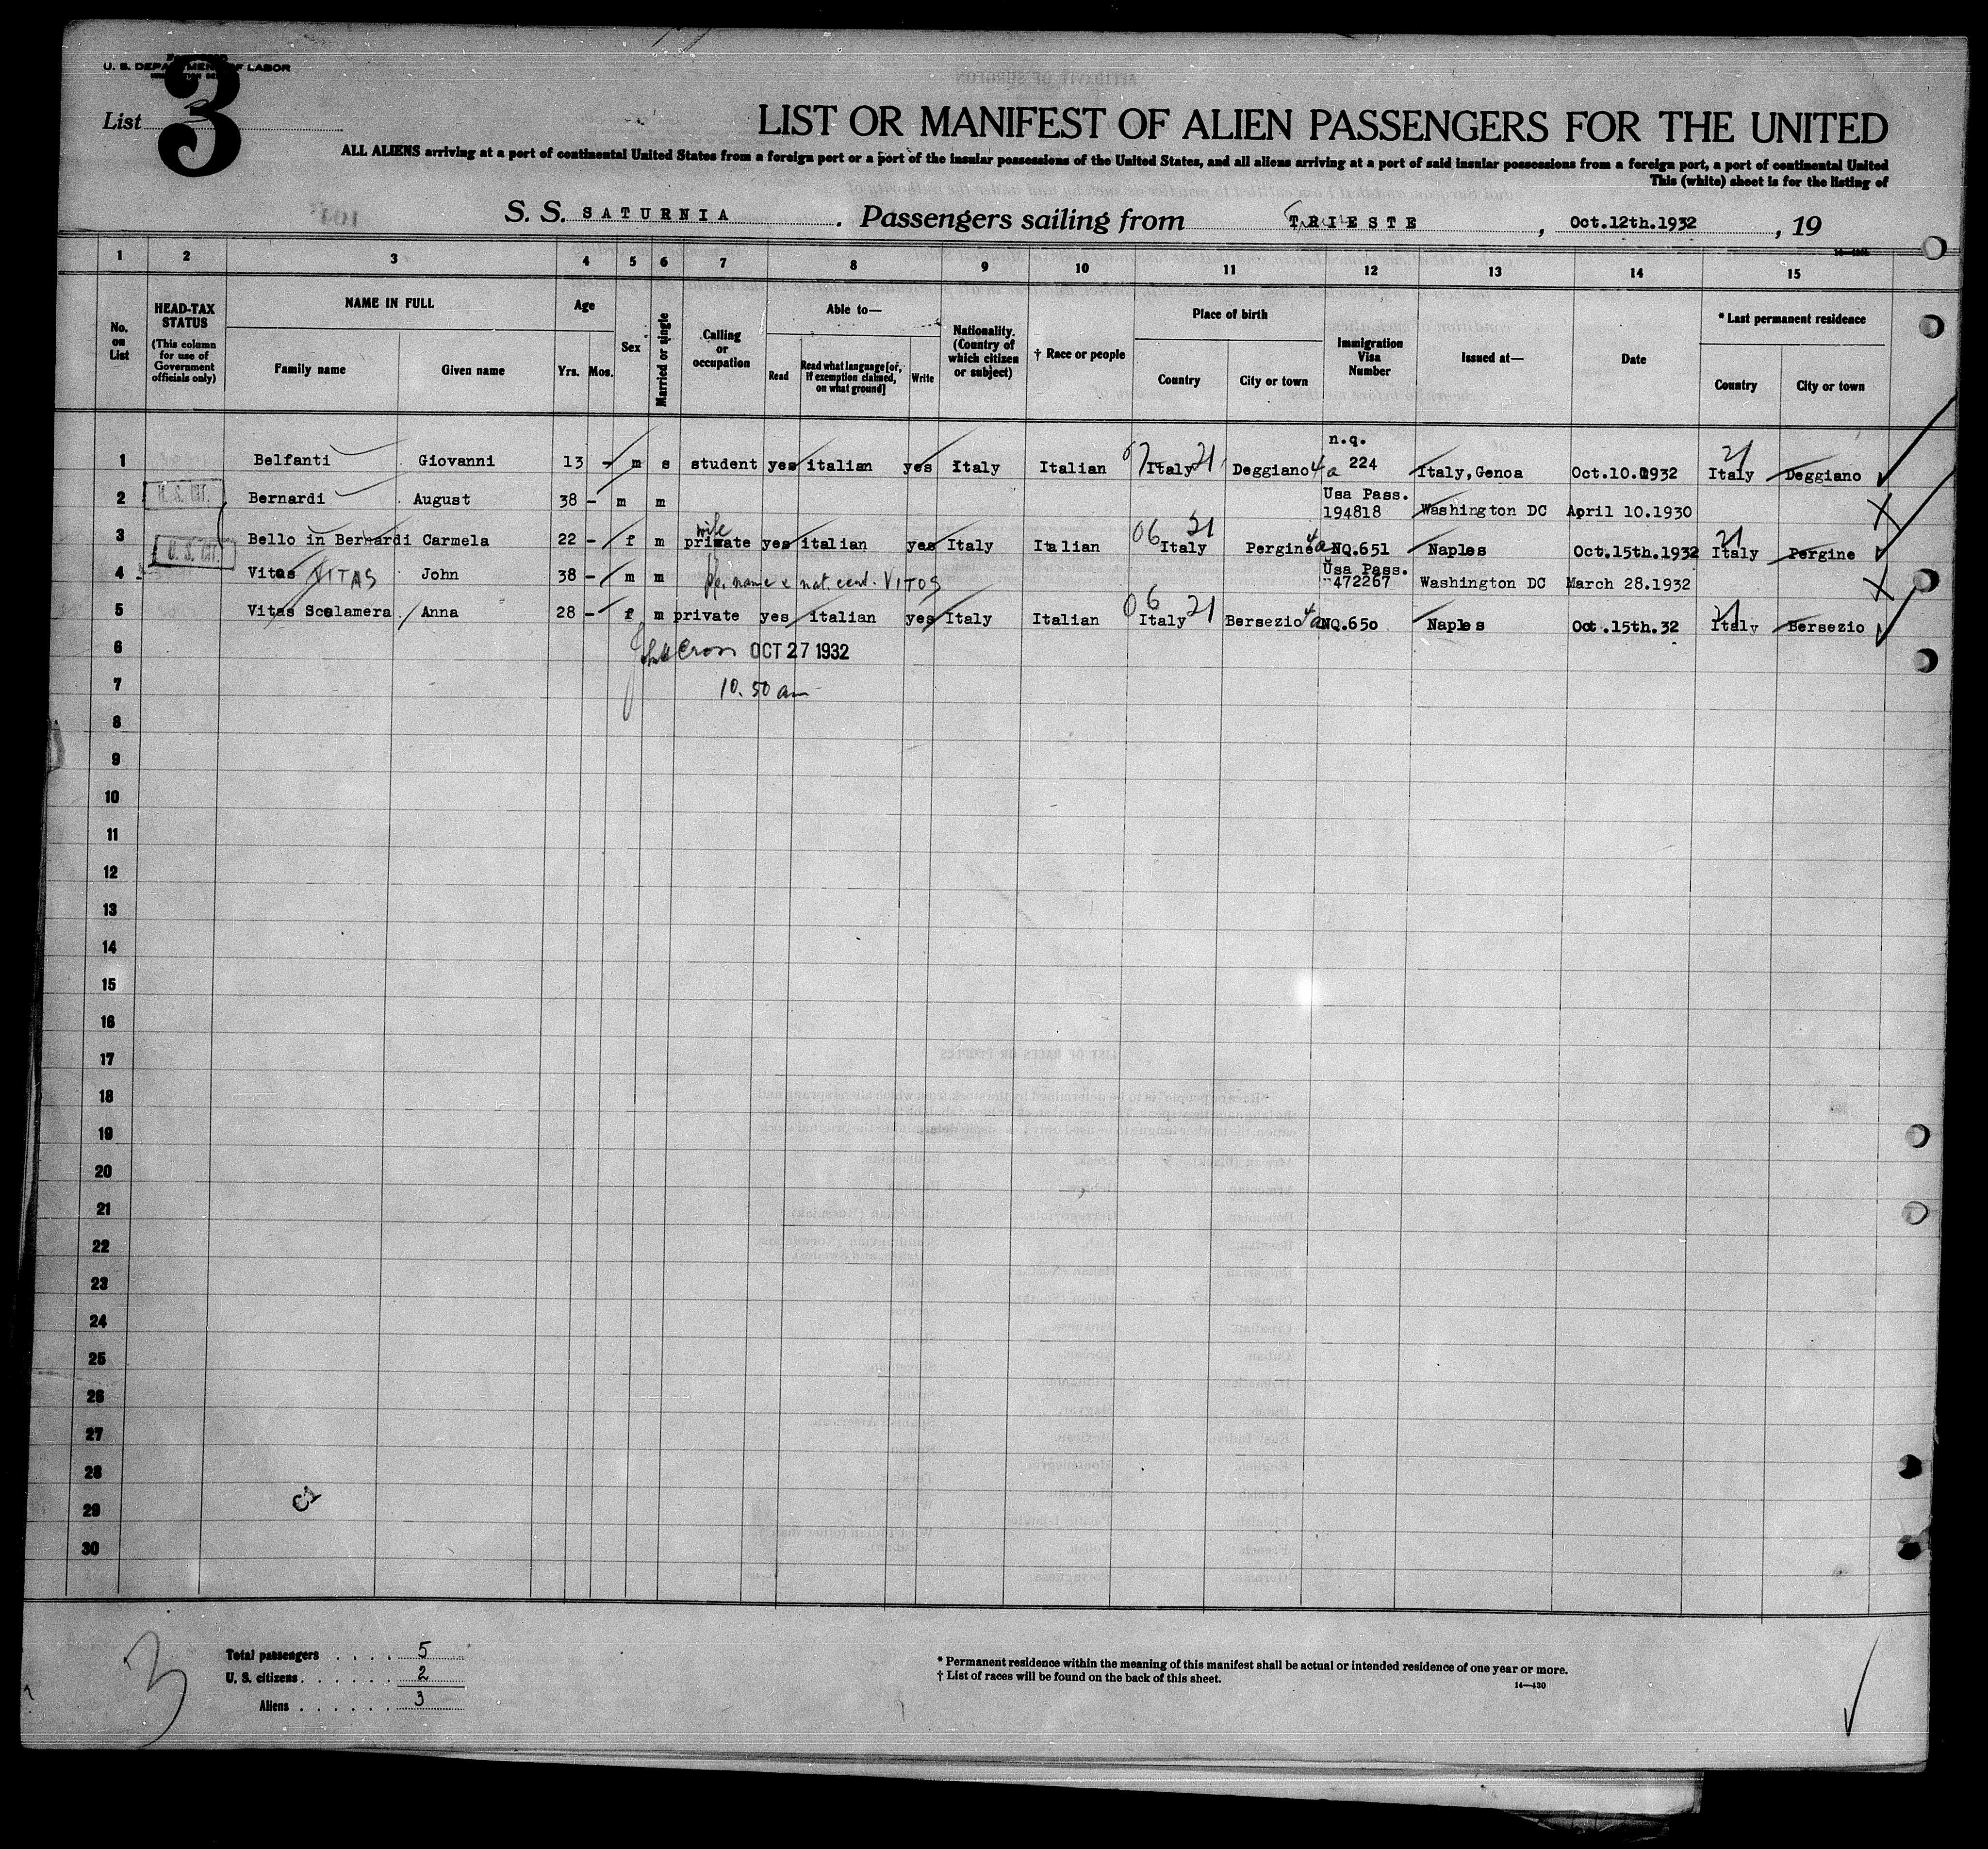 U. S. DEPARTMENT OF LABOR
List 3
3
LIST OR MANIFEST OF ALIEN PASSENGERS FOR THE UNITED
ALL ALIENS arriving at a port of continental United States from a foreign port or a port of the insular possessions of the United States, and all aliens arriving at a port of said insular possessions from a foreign port, a port of continental United
This (white) sheet is for the listing of
S. S. SATURNIA. Passengers sailing from TRIESTE, Oct.12th.1932, 19
1 2 3 4 5 6 7 8 9 10 11 12 13 14 15
No. on List
HEAD-TAX STATUS (This column for use of Government officials only)
NAME IN FULL
Family name Given name
Age
Yrs. Mos.
Sex
Married or single
Calling or occupation
Able to—
Read Read what language [or, if exemption claimed, on what ground] Write
Nationality. (Country of which citizen or subject)
† Race or people
Place of birth
Country City or town
Immigration Visa Number
Issued at—
Date
* Last permanent residence
Country City or town
n.q.
1 Belfanti Giovanni 13 - m s student yes italian yes Italy Italian 07 Italy 21 Deggiano 4a 224 Italy, Genoa Oct.10.1932 21 Italy Deggiano
2 U. S. CIT. Bernardi August 38 - m m Usa Pass. 194818 Washington DC April 10.1930
wife
3 Bello in Bernardi Carmela 22 - f m private yes italian yes Italy Italian 06 Italy 21 Pergine 4a NQ.651 Naples Oct.15th.1932 21 Italy Pergine
4 U. S. CIT. Vitas VITAS John 38 - m m name & nat. cert. VITOS Usa Pass. 472267 Washington DC March 28.1932
5 Vitas Scalamera Anna 28 - f m private yes italian yes Italy Italian 06 Italy 21 Bersezio 4a NQ.650 Naples Oct.15th.32 21 Italy Bersezio
6 OCT 27 1932
7 10.50 am
8
9
10
11
12
13
14
15
16
17
18
19
20
21
22
23
24
25
26
27
28
29
30
3
Total passengers . . . . 5
U. S. citizens . . . . . . 2
Aliens . . . . . . 3
* Permanent residence within the meaning of this manifest shall be actual or intended residence of one year or more.
† List of races will be found on the back of this sheet.
14—430